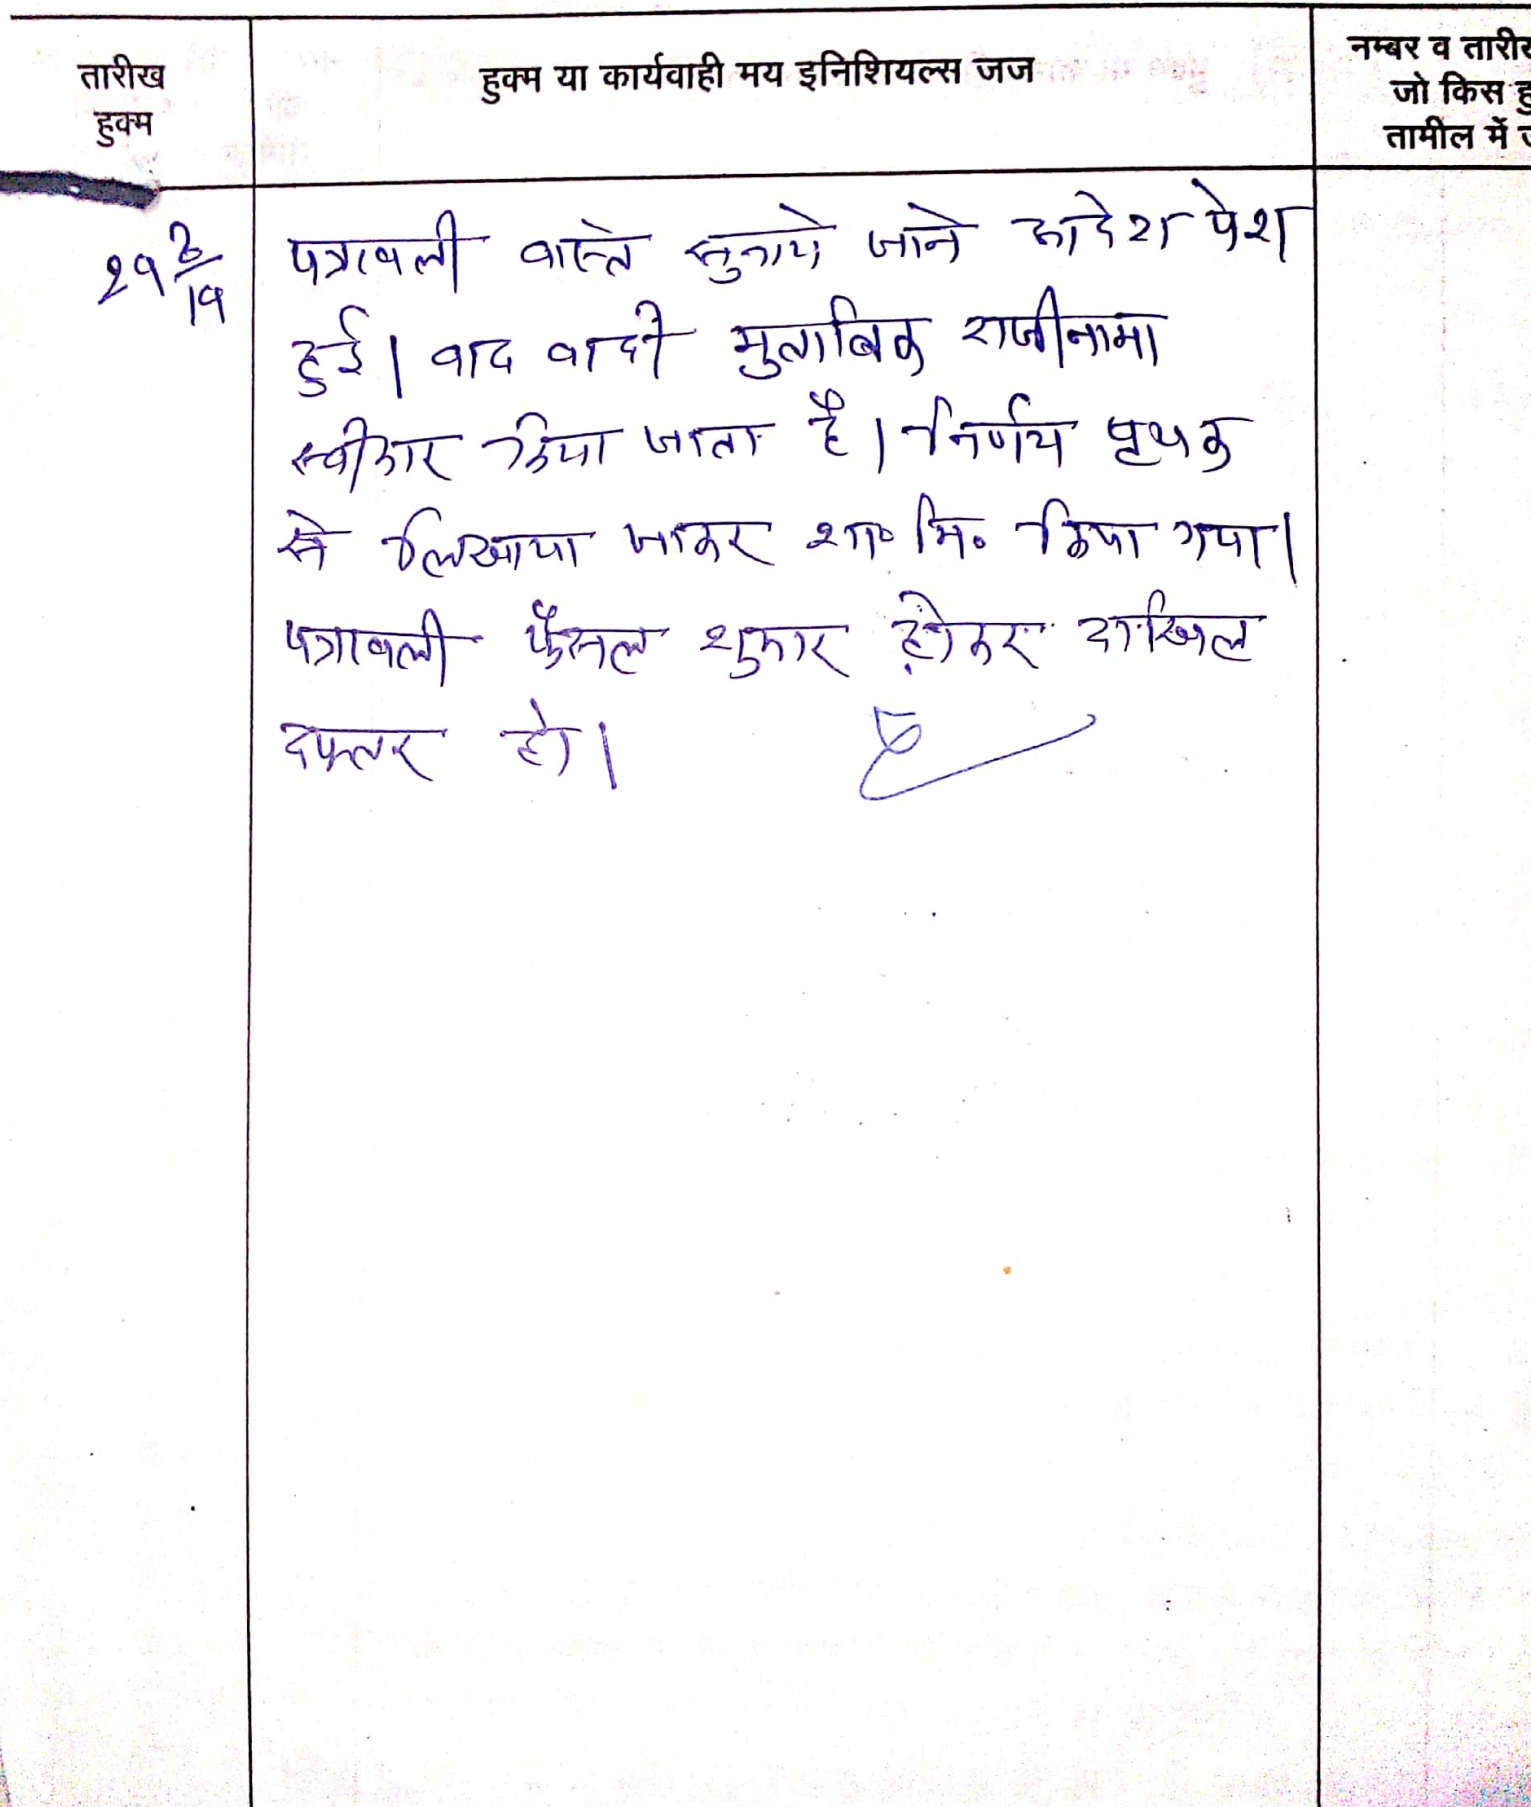 तारीख
हुक्म
हुक्म या कार्यवाही मय इनिशियल्स जज
नम्बर व तारीख
जो किस हु
तामील में ज
पत्रावली वास्ते सुनाये जाने आदेश पेश
हुई। वाद वादी मुताबिक राजीनामा
स्वीकार किया जाता है। निर्णय पृथक
से लिखाया जाकर शा० मि० किया गया।
पत्रावली फैसल शुमार होकर दाखिल
दफ्तर हो।